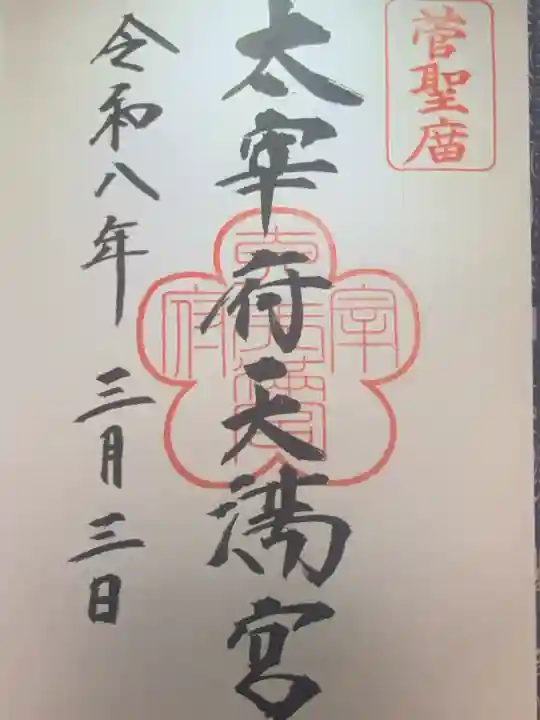 菅聖庿
太宰府天満宮
令和八年 三月三日